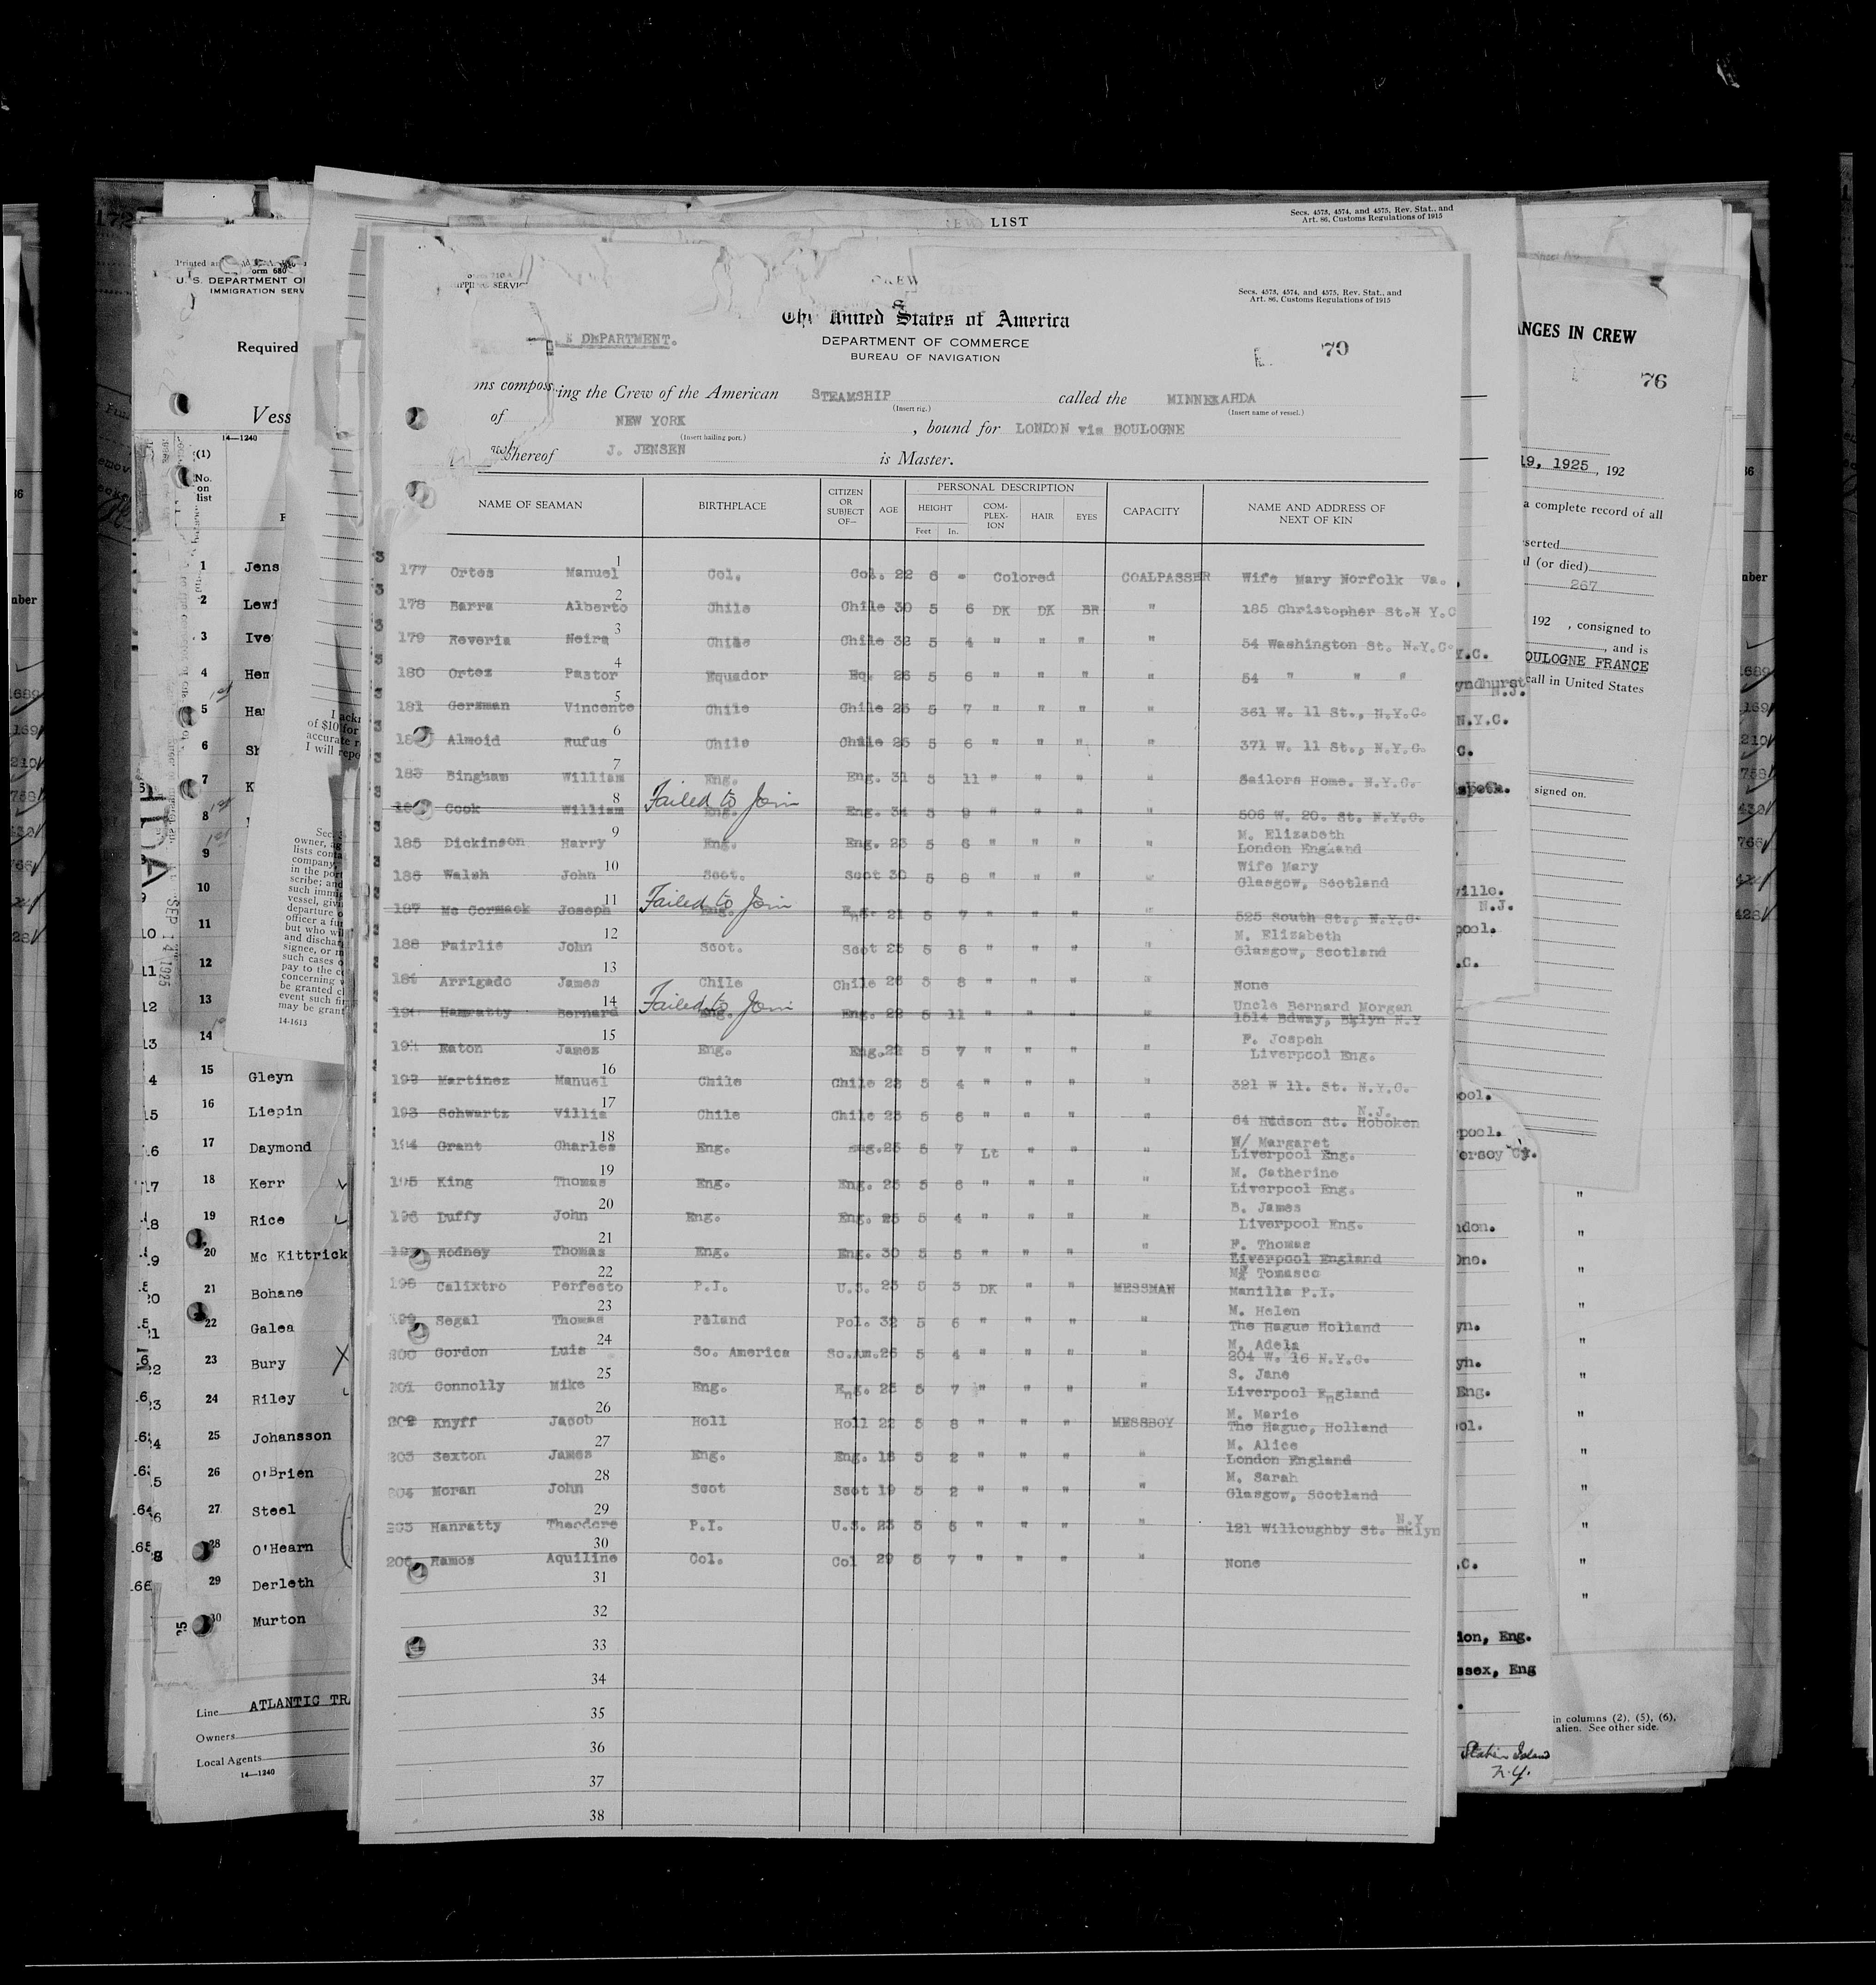 LIST
Secs. 4573, 4574, and 4575, Rev. Stat., and
Art. 86, Customs Regulations of 1915
Secs. 4573, 4574, and 4575, Rev. Stat., and
Art. 86, Customs Regulations of 1915
United States of America
DEPARTMENT OF COMMERCE
BUREAU OF NAVIGATION
DEPARTMENT.
79
ing the Crew of the American STEAMSHIP called the MINNEKAHDA
(Insert rig.) (Insert name of vessel.)
of NEW YORK , bound for LONDON via BOULOGNE
(Insert hailing port.)
whereof J. JENSEN is Master.
NAME OF SEAMAN BIRTHPLACE CITIZEN OR SUBJECT OF— AGE PERSONAL DESCRIPTION CAPACITY NAME AND ADDRESS OF NEXT OF KIN
HEIGHT COM-PLEX-ION HAIR EYES
Feet In.
177 Ortes Manuel 1 Col. Col. 22 6 - Colored COALPASSER Wife Mary Norfolk Va.
178 Barra Alberto 2 Chile Chile 30 5 6 DK DK BR " 185 Christopher St.N Y.C
179 Reveria Neira 3 Chile Chile 32 5 4 " " " " 54 Washington St. N.Y.C.
180 Ortez Pastor 4 Equador Eq. 26 5 6 " " " " 54 " " "
181 Gersman Vincente 5 Chile Chile 25 5 7 " " " " 361 W. 11 St., N.Y.C.
Almoid Rufus 6 Chile Chile 25 5 6 " " " " 371 W. 11 St., N.Y.C.
183 Bingham William 7 Eng. Eng. 31 5 11 " " " " Sailors Home. N.Y.C.
Cook William 8 Failed to Join Eng. Eng. 34 5 9 " " " " 506 W. 20. St. N.Y.C.
185 Dickinson Harry 9 Eng. Eng. 23 5 6 " " " " M. Elizabeth
London England
186 Walsh John 10 Scot. Scot 30 5 8 " " " " Wife Mary
Glasgow, Scotland
187 Mc Cormack Joseph 11 Failed to Join Eng. Eng. 21 5 7 " " " " 525 South St., N.Y.C.
188 Fairlie John 12 Scot. Scot 23 5 6 " " " " M. Elizabeth
Glasgow, Scotland
Arrigado James 13 Chile Chile 26 5 8 " " " " None
Hanratty Bernard 14 Failed to Join Eng. Eng. 22 5 11 " " " " Uncle Bernard Morgan
1514 Bdway, Bklyn N.Y
Eaton James 15 Eng. Eng.22 5 7 " " " " F. Jospeh
Liverpool Eng.
Martinez Manuel 16 Chile Chile 23 5 4 " " " " 321 W 11. St. N.Y.C.
193 Schwartz Villia 17 Chile Chile 23 5 6 " " " " N.J.
64 Hudson St. Hoboken
194 Grant Charles 18 Eng. Eng.25 5 7 Lt " " " W/ Margaret
Liverpool Eng.
195 King Thomas 19 Eng. Eng. 25 5 6 " " " " M. Catherine
Liverpool Eng.
196 Duffy John 20 Eng. Eng. 25 5 4 " " " " B. James
Liverpool Eng.
Rodney Thomas 21 Eng. Eng. 30 5 5 " " " " F. Thomas
Liverpool England
198 Calixtro Perfecto 22 P.I. U.S. 23 5 3 DK " " MESSMAN Tomasco
Manilla P.I.
Segal Thomas 23 Poland Pol. 32 5 6 " " " " M. Helen
The Hague Holland
200 Gordon Luis 24 So. America So.Am.26 5 4 " " " " M. Adela
204 W. 16 N.Y.C.
201 Connolly Mike 25 Eng. Eng. 25 5 7 " " " " S. Jane
Liverpool England
202 Knyff Jacob 26 Holl Holl 22 5 8 " " " MESSBOY M. Marie
The Hague, Holland
203 Sexton James 27 Eng. Eng. 18 5 2 " " " " M. Alice
London England
204 Moran John 28 Scot Scot 19 5 2 " " " " M. Sarah
Glasgow, Scotland
205 Hanratty Theodore 29 P.I. U.S. 23 5 5 " " " " N.Y
121 Willoughby St. Bklyn
206 Ramos Aquiline 30 Col. Col 29 5 7 " " " " None
31
32
33
34
35
36
37
38
U. S. DEPARTMENT OF
IMMIGRATION SERV
Required
Vess
14—1240
(1)
No. on list
1 Jens
2 Lewi
3 Ive
4 Hen
5 Ha
6
7 K
8
9
10
11
12
13
14
15 Gleyn
16 Liepin
17 Daymond
18 Kerr
19 Rice
20 Mc Kittrick
21 Bohane
22 Galea
23 Bury
24 Riley
25 Johansson
26 O'Brien
27 Steel
28 O'Hearn
29 Derleth
30 Murton
Line ATLANTIC TRA
Owners
Local Agents
14—1240
14-1613
SEP 14 1925
ANGES IN CREW
76
19, 1925, 192
a complete record of all
serted
l (or died)
267
192 , consigned to
, and is
OULOGNE FRANCE
call in United States
signed on.
in columns (2), (5), (6),
alien. See other side.
Y.C.
yndhurst
N.J.
N.Y.C.
ville.
N.J.
pool.
ion, Eng.
ssex, Eng
Staten Island
N.Y.